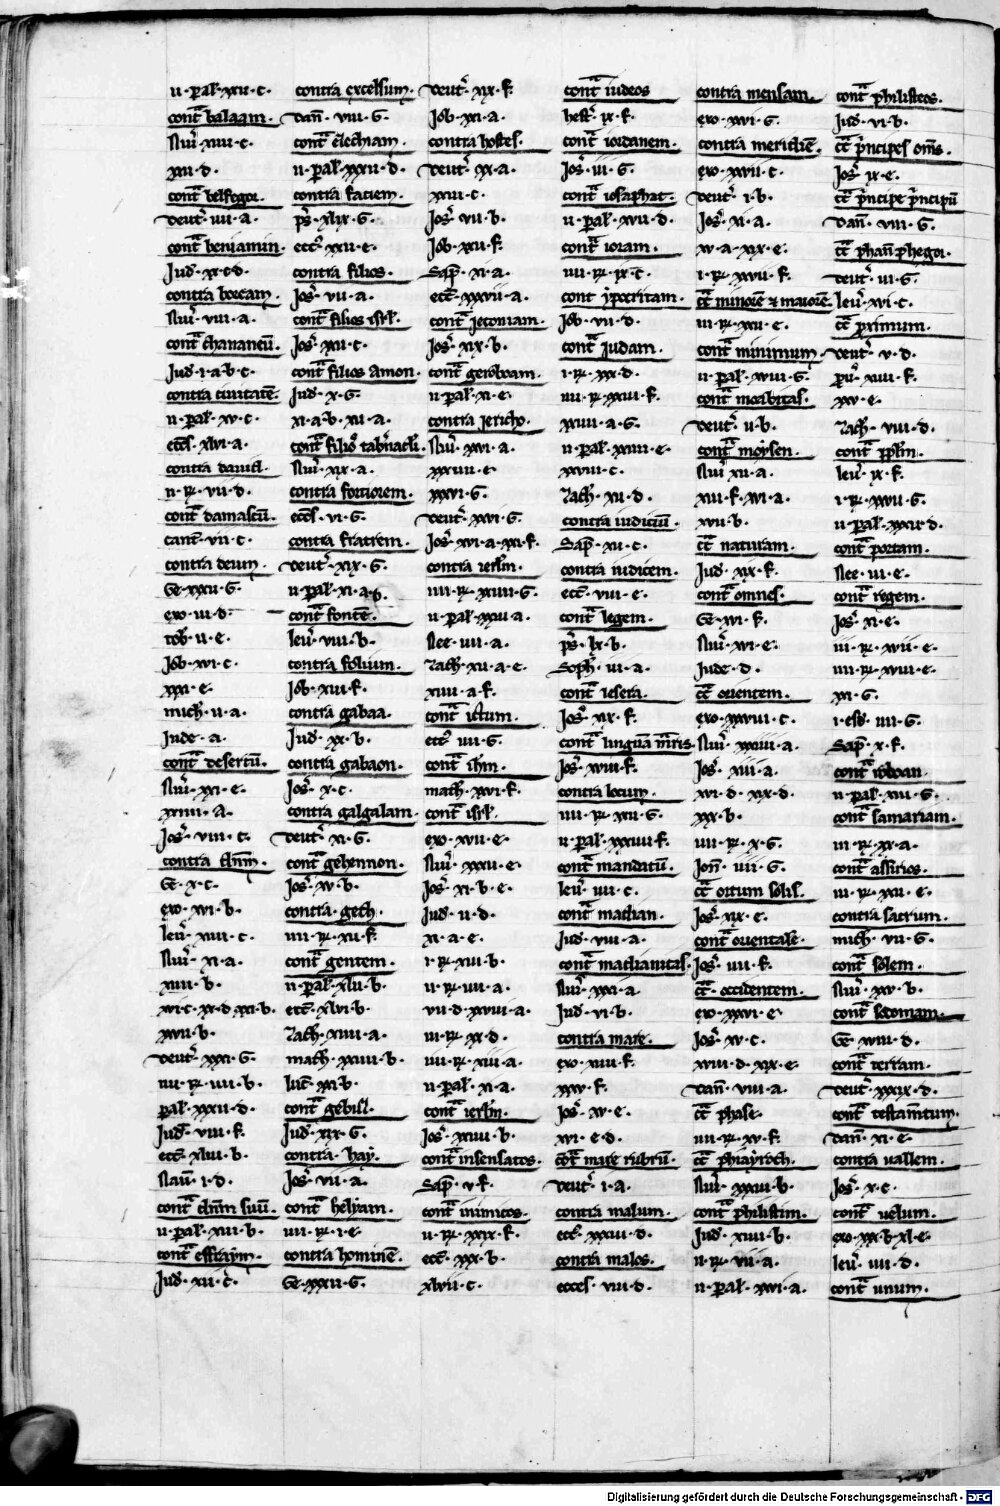 ii · pal · xxii · c ·
cont balaam ·
Nu · xxiii · c ·
xxii · d ·
cont belfegor
deut · iii · a ·
cont beniamin ·
Jud · xx · c · d ·
contra boream ·
Nu · viii · a ·
cont chananeu ·
Jud · i · a · b · c ·
contra civitate ·
ii · pal · xv · c ·
eccl · xlvi · a ·
contra dauid ·
ii · R · vii · d ·
cont damascu ·
cant · vii · c ·
contra deum ·
Ge · xxxii · G ·
exo · iii · d ·
tob · ii · e ·
Job · xvi · c ·
xxxi · e ·
mich · ii · a ·
Jude · a ·
cont desertu ·
Nu · xxi · e ·
xxiiii · A ·
Jos · viii · c ·
contra dnm ·
Ge · x · c ·
exo · xvi · b ·
leu · xiii · c ·
Nu · xi · a ·
xiiii · b ·
xvi · c · xx · d · xxi · b ·
xxvii · b ·
Deut · xxxi · G ·
iiii · R · iiii · b ·
pal · xxxii · d ·
Jud · viii · f ·
ecc · xlvi · b ·
Naū · i · d ·
cont dnm suū ·
ii · pal · xiii · b ·
cont effraym ·
Jud · xii · c ·
contra excelsum ·
Dan · viii · G ·
cont ezechiam ·
ii · pal · xxxii · d ·
contra faciem ·
ps · xlix · G ·
ecc · xxii · e ·
contra filios ·
Jos · vii · a ·
cont filios isrl ·
Jos · xxii · c ·
cont filios Amon ·
Jud · x · G ·
xi · a · b · xii · a ·
cont filio tabnacli ·
Nu · xix · a ·
contra fortiorem ·
eccl · vi · G ·
contra fratrem ·
Deut · xix · G ·
ii · pal · xi · a · G ·
cont fonte ·
leu · viii · b ·
contra folium ·
Job · xiii · f ·
contra gabaa ·
Jud · xx · b ·
contra gabaon ·
Jos · x · c ·
contra galgalam ·
deut · xi · G ·
cont gehennon ·
Jos · xv · b ·
contra geth ·
iiii · R · xii · f ·
cont gentem ·
ii · pal · xlii · b ·
ecc · xlvi · b ·
Zach · xiiii · a ·
math · xxiiii · b ·
luc · xxi · b ·
cont gebill ·
Jud · xix · G ·
contra · hay ·
Jos · vii · a ·
cont helyam ·
iiii · R · i · e ·
contra homine ·
Ge · xxxii · G ·
Deut · xix · f ·
Job · xxi · a ·
contra hostes ·
deut · xx · a ·
xxiii · c ·
Jos · vii · b ·
Job · xxii · f ·
Sap · xi · a ·
ecc · xxxvii · a ·
cont Jeconiam ·
Jos · xix · b ·
cont geroboam ·
ii · pal · xi · e ·
contra Jericho ·
Nu · xxvi · a ·
xxxiii · e ·
xxxvi · G ·
deut · xxvi · G ·
Jos · xvi · a · xxi · f ·
contra ierlm ·
iiii · R · xviii · G ·
ii · pal · xxii · a ·
Nee · iiii · a ·
Zach · xii · a · e ·
xiiii · a · f ·
cont ictum ·
ecc · iiii · G ·
cont ihm ·
math · xxvi · f ·
cont isrl ·
exo · xvii · e ·
Nu · xxxii · e ·
Jos · xi · b · e ·
Jud · ii · d ·
xi · a · e ·
i · R · xii · b ·
ii · R · iii · a ·
vii · d · xxviii · a ·
iii · R · xx · d ·
iiii · R · xiii · a ·
ii · pal · xi · a ·
cont ierlm ·
Jos · xxiiii · b ·
cont insensatos ·
Sap · v · f ·
cont inimicos ·
ii · R · xxix · f ·
ecc · xxx · b ·
xlvii · c ·
cont iudeos
hest · ix · f ·
cont iordanem ·
Jos · iii · G ·
cont iosaphat ·
ii · pal · xvii · d ·
cont ioram ·
iiii · R · ix · c ·
cont ypocritam ·
Job · vii · d ·
cont Judam ·
i · R · xxx · d ·
iiii · R · xxiii · f ·
xxvii · a · G ·
ii · pal · xxiiii · e ·
xxviii · c ·
Zach · xii · d ·
contra iudiciu ·
Sap · xii · c ·
contra iudicem ·
ecc · viii · e ·
cont legem ·
ps · lx · b ·
Soph · iii · a ·
cont lesera ·
Jos · xix · f ·
cont lingua mris ·
Jos · xviii · f ·
contra locum ·
iiii · R · xxii · G ·
ii · pal · xxxiiii · f ·
cont mandatu ·
leu · iiii · c ·
cont madian ·
Jud · viii · a ·
cont madianitas ·
Nu · xxxi · a ·
Jud · vi · b ·
contra mare ·
exo · xiiii · f ·
xxv · f ·
Jos · xv · e ·
xvi · e · d ·
cot mare rubru ·
deut · i · a ·
contra malum ·
ecc · xxxiii · d ·
contra malos ·
eccl · viii · d ·
contra mensam
exo · xxvi · G ·
contra meridie ·
exo · xxvii · c ·
Deut · i · b ·
Jos · xi · a ·
xv · a · xix · e ·
i · R · xxvii · f ·
ct minore et maiore ·
iii · R · xxii · e ·
cont minimum ·
ii · pal · xviii · G ·
cont moabitas ·
Deut · ii · b ·
cont moysen ·
Nu · xii · a ·
xiii · f · xvi · a ·
xvii · b ·
ct naturam ·
Jud · xix · f ·
cont omnes ·
Ge · xvi · f ·
Nu · xvi · e ·
Jude · d ·
ct orientem ·
exo · xxxviii · c ·
Nu · xxxiiii · a ·
Jos · xiii · a ·
xvi · d · xx · d ·
xxx · b ·
iiii · R · x · G ·
Jon · iiii · G ·
ct ortum solis ·
Jos · xix · e ·
cont orientale ·
Jos · iiii · f ·
ct · occidentem ·
exo · xxxvi · e ·
Jos · xv · c ·
xviii · d · xix · e ·
Dan · viii · a ·
ct phase ·
iiii · R · xv · f ·
ct phiayroth ·
Nu · xxxiii · b ·
cont philistim ·
Jud · xiiii · b ·
ii · R · vii · a ·
ii · pal · xvi · a ·
cont philisteos ·
Jud · vi · b ·
ct pncipes oms ·
Jos · ix · e ·
ct pncipe pncipu
Dan · viii · G ·
ct phan phegor ·
deut · iii · G ·
leu · xvi · c ·
ct primum ·
Deut · v · d ·
pu · xiiii · f ·
xxv · e ·
Zach · viii · d ·
cont pplm ·
leu · ix · f ·
i · R · xxvii · G ·
ii · pal · xxxii · d ·
cont portam ·
Nee · iii · e ·
cont regem ·
Jos · xi · e ·
iii · R · xvii · e ·
iiii · R · xviii · e ·
xxi · G ·
i · esd · iiii · G ·
Sap · x · f ·
cont roboan ·
ii · pal · xiii · G ·
cont samariam ·
iii · R · xx · a ·
cont assirios ·
iii · R · xxi · e ·
contra sacrum ·
mich · vii · G ·
cont solem ·
Nu · xxv · b ·
cont sodomam ·
Ge · xviii · d ·
cont terram ·
Deut · xxxix · d ·
cont testamtum ·
Dan · xi · e ·
contra vallem ·
Jos · x · c ·
cont velum ·
exo · xxx · b · xl · e ·
leu · iiii · d ·
cont unum ·
Digitalisierung gefördert durch die Deutsche Forschungsgemeinschaft - DFG